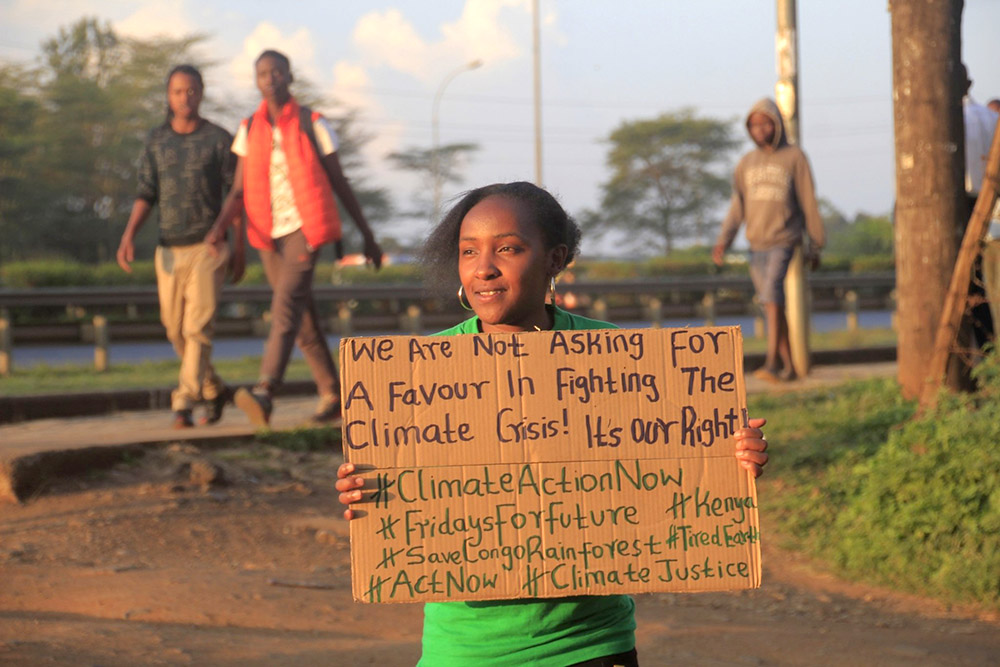 We Are Not Asking For
A Favour In Fighting The
Climate Crisis! It's Our Right!
#ClimateActionNow
#FridaysForFuture #Kenya
#SaveCongoRainforest #TiredEarth
#ActNow #ClimateJustice